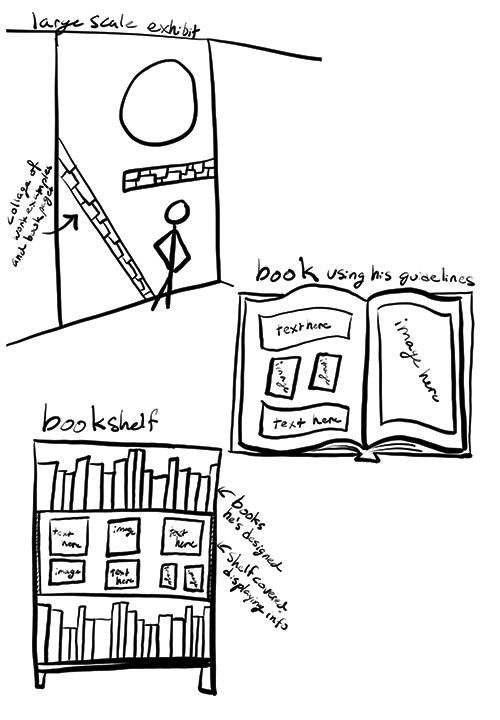 large scale exhibit
collage of
work examples
and book pages
book using his guidelines
text here
image
image
text here
image here
bookshelf
text here
image
text here
image
text here
image
image
books
he's designed
shelf covered
displaying info